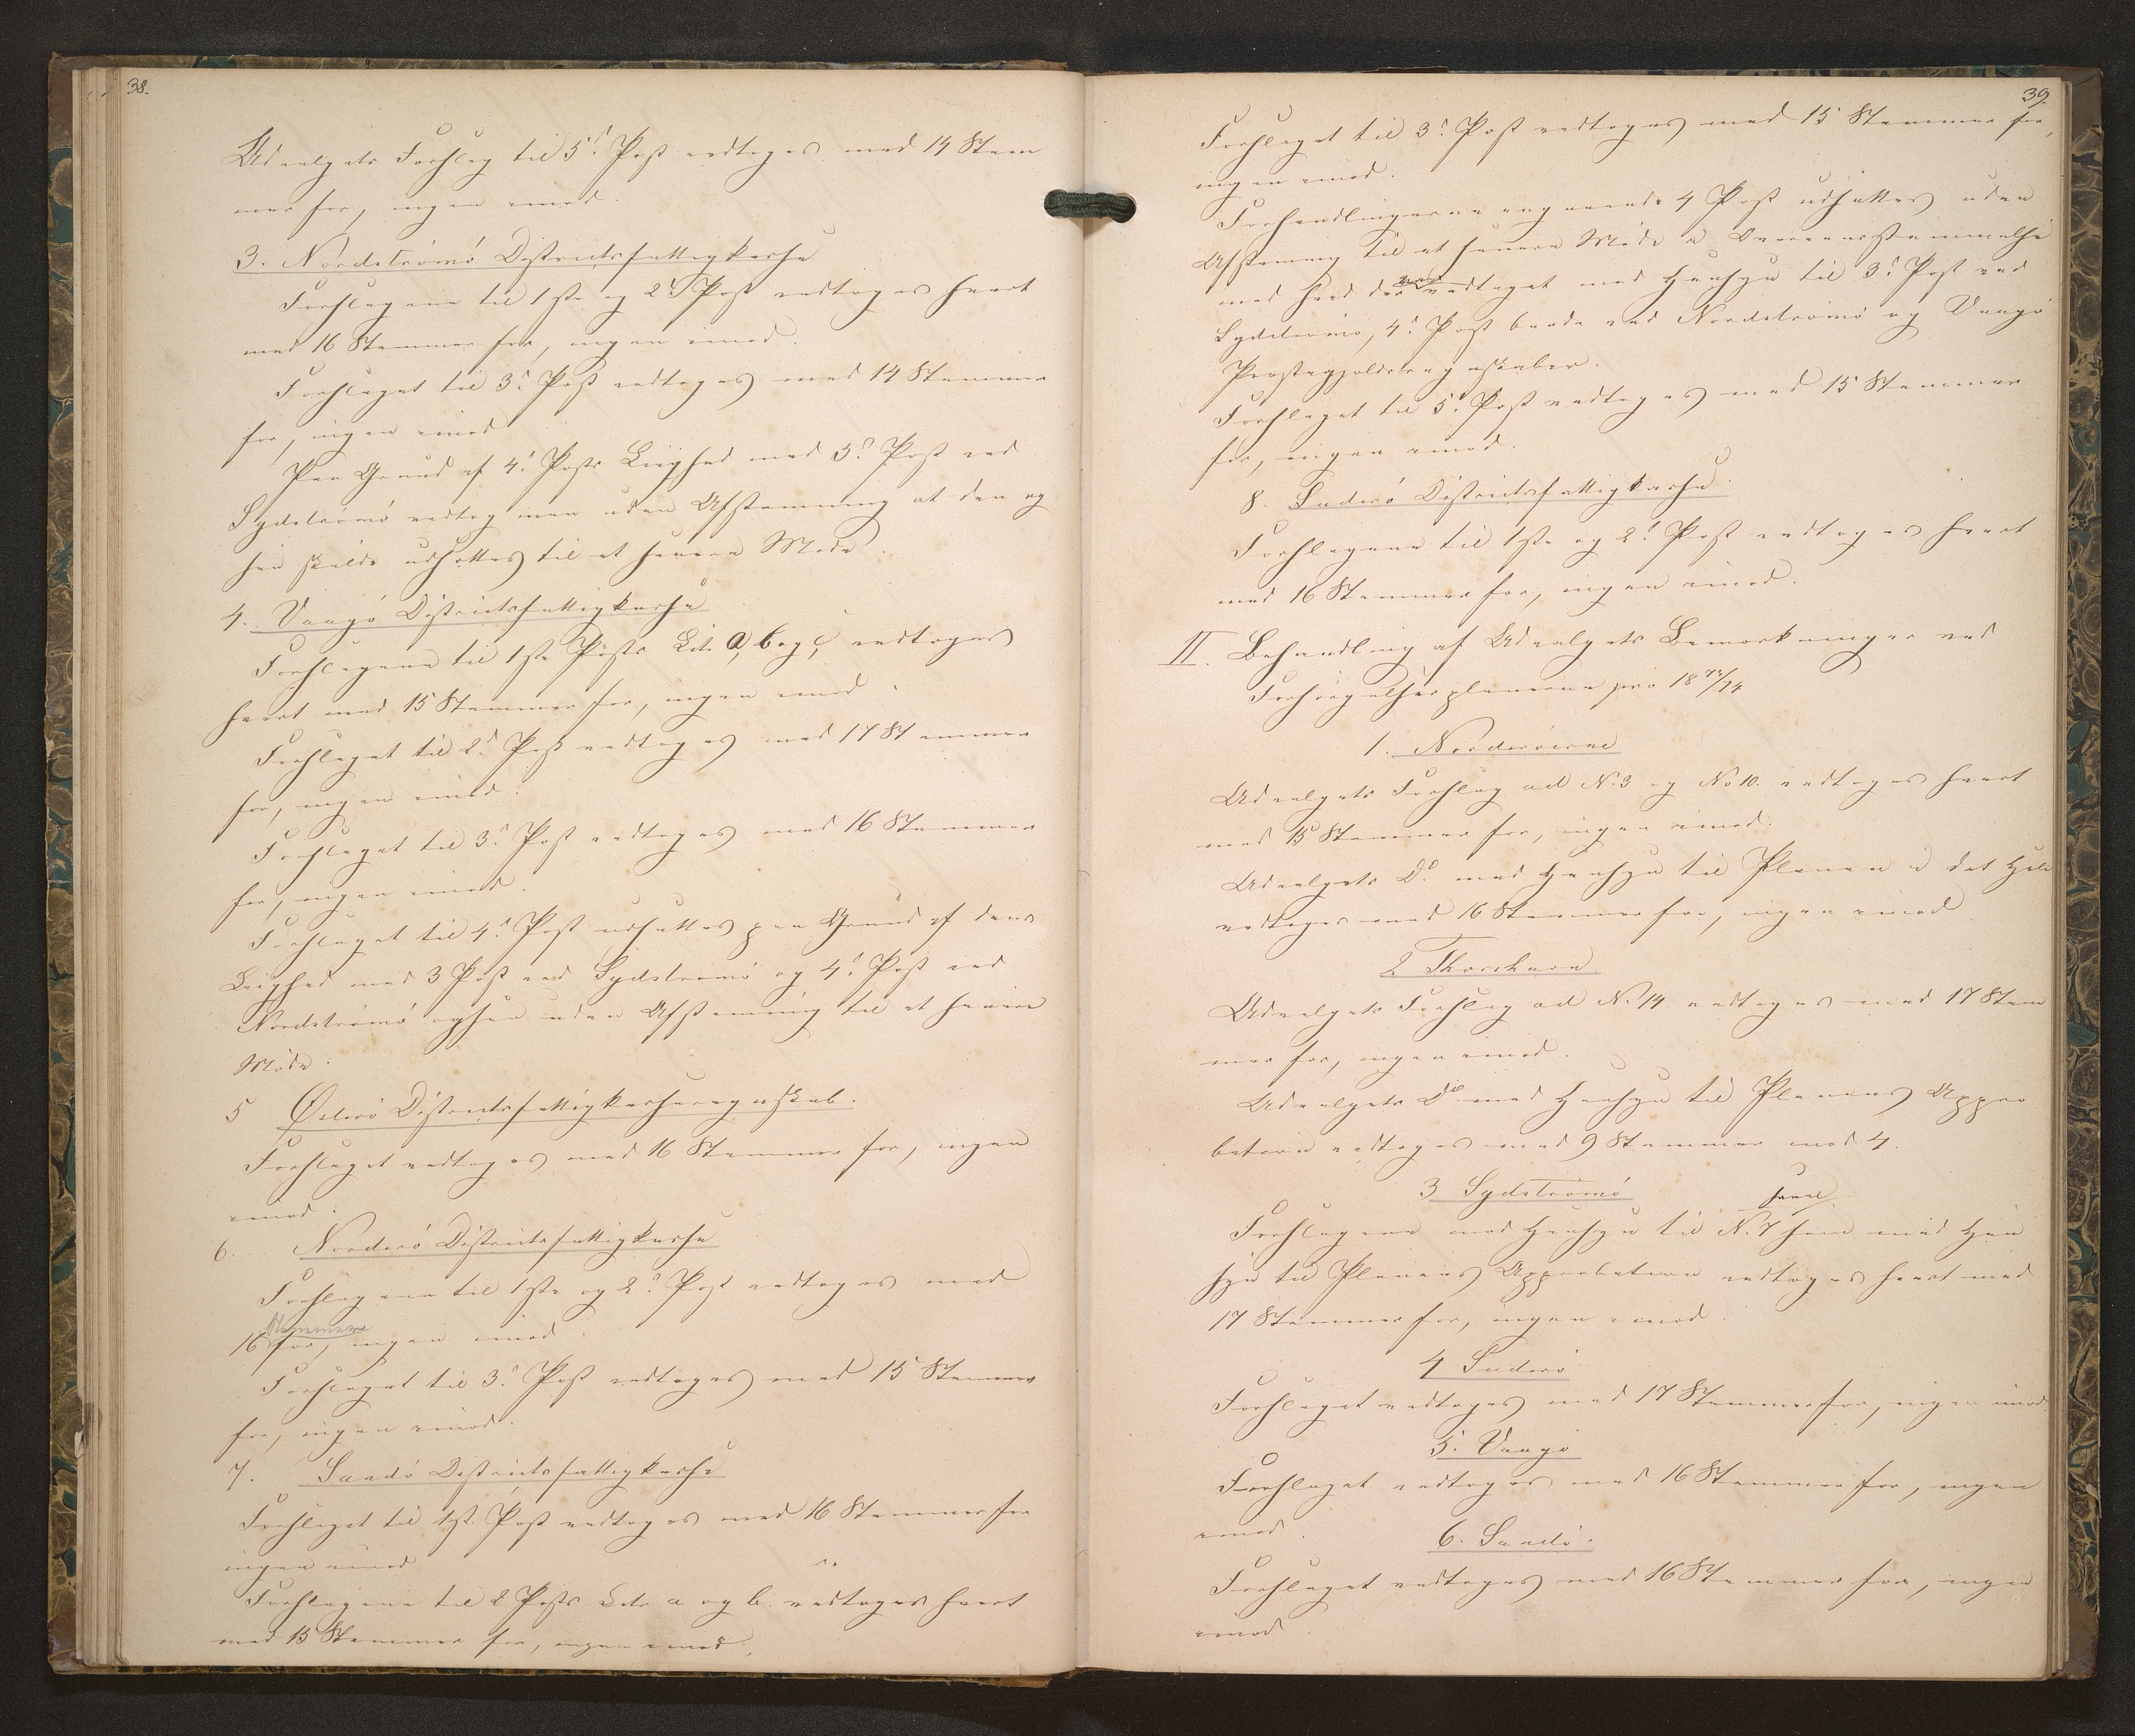 38.
Udvalgets Forslag til 5d. Post vedtoges med 14 Stem
mer for, ingen imod.
3. Nordstrømø Districtsfattigkasse
Forslagene til 1ste og 2d. Post vedtoges hvert
med 16 Stemmer for, ingen imod.
Forslaget til 3d. Post vedtoges med 14 Stemmer
for, ingen imod
Paa Grund af 4d. Posts Liighed med 3d. Post ved
Sydstrømø vedtog man uden Afstemning at den og
saa skulde udsættes til et senere Møde.
4. Vaagø Districtsfattigkasse
Forslagene til 1ste Posts Litr. a, b og c, vedtoges
hvert med 15 Stemmer for, ingen imod.
Forslaget til 2d. Post vedtoges med 17 Stemmer
for, ingen imod.
Forslaget til 3d. Post vedtoges med 16 Stemmer
for, ingen imod.
Forslaget til 4d. Post udsattes paa Grund af dens
Liighed med 3 Post ved Sydstrømø og 4d. Post ved
Nordstrømø ogsaa uden Afstemning til et senere
Møde.
5 Østerø Districtsfattigkasseregnskab.
Forslaget vedtoges med 16 Stemmer for, ingen
imod.
6. Norderø Districtsfattigkasse
Forslagene til 1ste og 2d. Post vedtoges med
Stemmer
16 for, ingen imod.
Forslaget til 3d. Post vedtoges med 15 Stemmer
for, ingen imod.
7. Sandø Districtsfattigkasse
Forslaget til 1st. Post vedtoges med 16 Stemmer for
ingen imod
Forslagene til 2 Posts Litr. a og b. vedtoges hvert
med 15 Stemmer for, ingen imod.
39.
Forslaget til 3d. Post vedtoges med 15 Stemmer for,
ingen imod.
Forhandlingerne angaaende 4 Post udsattes uden
Afstemning til et senere Møde i Overeensstemmelse
med hvad der var vedtaget med Hensyn til 3d. Post ved
Sydstrømø, 4d. Post baade ved Nordstrømø og Vaagø
Præstegjældsregnskaber.
Forslaget til 5d. Post vedtoges med 15 Stemmer
for, ingen imod.
8. Suderø Districtsfattigkasse.
Forslagene til 1ste og 2d. Post vedtoges hvert
med 16 Stemmer for, ingen imod.
II. Behandling af Udvalgets Bemærkninger ved
Forsørgelsesplanerne pro 1873/74
1. Norderøerne
Udvalgets Forslag ad N. 3 og No 10. vedtoges hvert
med 15 Stemmer for, ingen imod.
Udvalgets Do. med Hensyn til Planen i det Hele
vedtoges med 16 Stemmer for, ingen imod
2 Thorshavn
Udvalgets Forslag ad N. 14 vedtoges med 17 Stem
mer for, ingen imod.
Udvalgets Do med Hensyn til Planens Appro
bation vedtoges med 9 Stemmer mod 4.
3 Sydstrømø
Forslagene med Hensyn til N. 7 som med Hen
syn til Planens Approbation vedtoges hvert med
17 Stemmer for, ingen imod.
4 Suderø
Forslaget vedtoges med 17 Stemmer for, ingen imod.
5. Vaagø
Forslaget vedtoges med 16 Stemmer for, ingen
imod.
6. Sandø.
Forslaget vedtoges med 16 Stemmer for, ingen
imod.